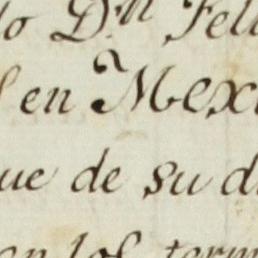 lo Dⁿ Feli
l en Mexi
ue de su di
en los term